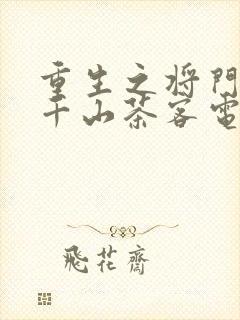 重生之将门
千山茶客电
飛花齋